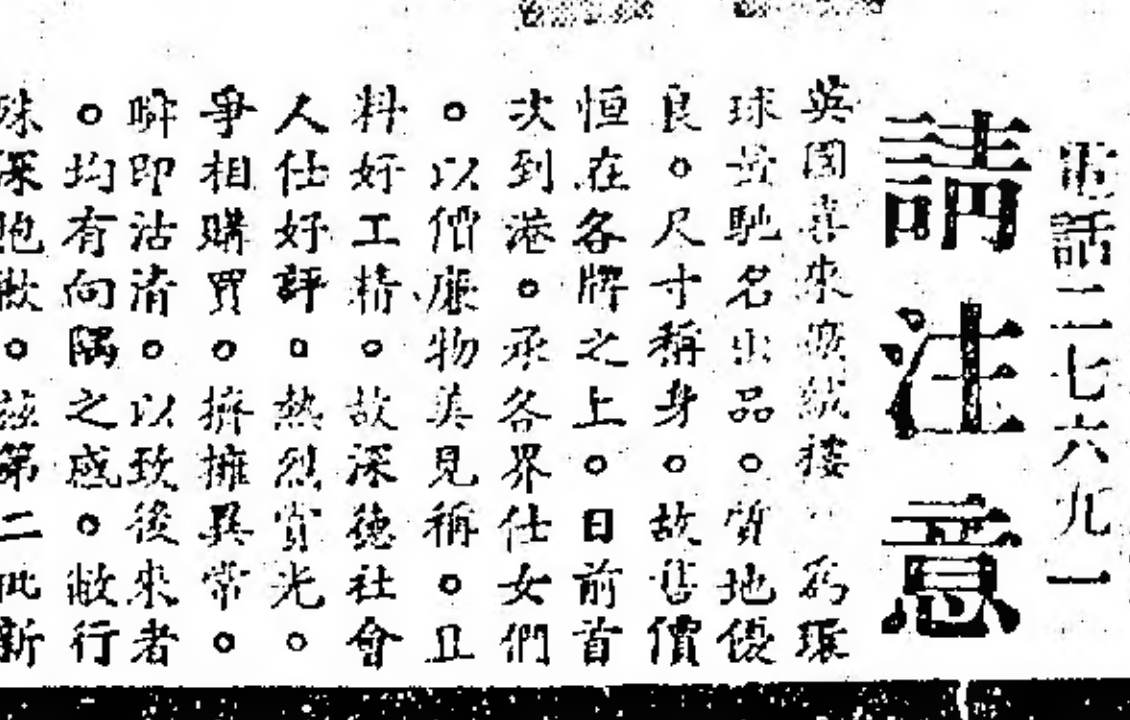 電話二七六九一
請注意
英國喜來㡡絨褸 為環
球最馳名出品。質地優
良。尺寸稱身。故售價
恒在各牌之上。日前首
次到港。承各界仕女們
。以價廉物美見稱。且
料好工精。故深徳社會
人仕好評。熱烈賞光。
爭相購買。擠擁異常。
瞬即沽清。以致後來者
。均有向隅之感。敝行
殊深抱歉。茲第二批新